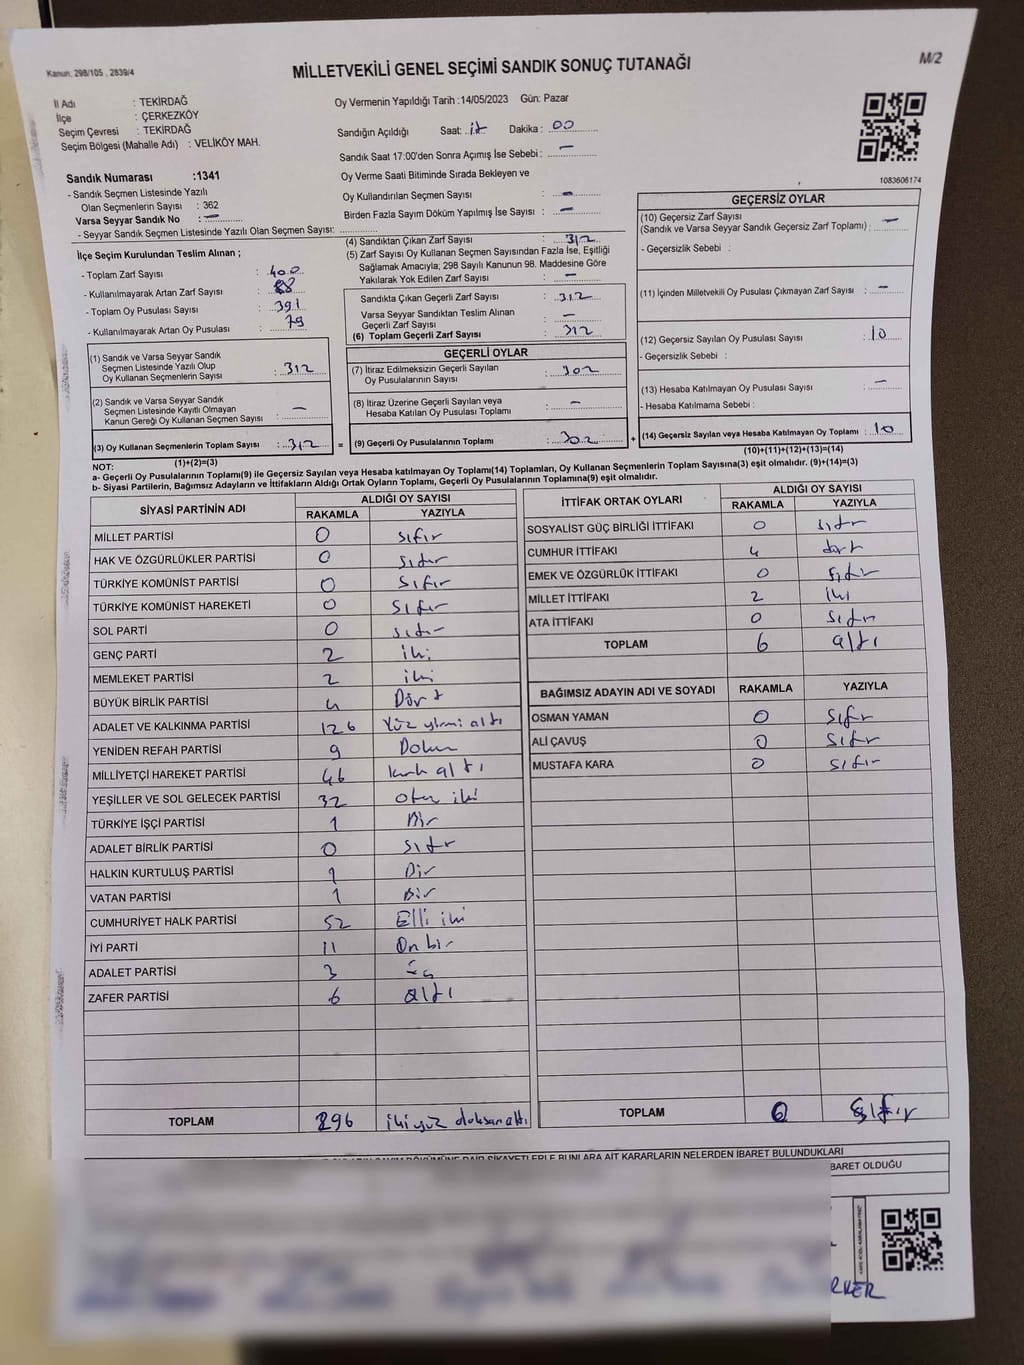 Kanun; 298/105 , 2839/4
MİLLETVEKİLİ GENEL SEÇİMİ SANDIK SONUÇ TUTANAĞI
M/2
İl Adı : TEKİRDAĞ
İlçe : ÇERKEZKÖY
Seçim Çevresi : TEKİRDAĞ
Seçim Bölgesi (Mahalle Adı) : VELİKÖY MAH.
Sandık Numarası :1341
- Sandık Seçmen Listesinde Yazılı
Olan Seçmenlerin Sayısı : 362
Varsa Seyyar Sandık No : —
- Seyyar Sandık Seçmen Listesinde Yazılı Olan Seçmen Sayısı:
Oy Vermenin Yapıldığı Tarih :14/05/2023 Gün: Pazar
Sandığın Açıldığı Saat: 17 Dakika : 00
Sandık Saat 17:00'den Sonra Açımış İse Sebebi : —
Oy Verme Saati Bitiminde Sırada Bekleyen ve
Oy Kullandırılan Seçmen Sayısı : —
Birden Fazla Sayım Döküm Yapılmış İse Sayısı : —
1083606174
İlçe Seçim Kurulundan Teslim Alınan ;
- Toplam Zarf Sayısı : 400
- Kullanılmayarak Artan Zarf Sayısı : 88
- Toplam Oy Pusulası Sayısı : 391
- Kullanılmayarak Artan Oy Pusulası : 79
(1) Sandık ve Varsa Seyyar Sandık
Seçmen Listesinde Yazılı Olup
Oy Kullanan Seçmenlerin Sayısı : 312
(2) Sandık ve Varsa Seyyar Sandık
Seçmen Listesinde Kayıtlı Olmayan
Kanun Gereği Oy Kullanan Seçmen Sayısı : —
(3) Oy Kullanan Seçmenlerin Toplam Sayısı : 312 =
(1)+(2)=(3)
(4) Sandıktan Çıkan Zarf Sayısı : 312
(5) Zarf Sayısı Oy Kullanan Seçmen Sayısından Fazla İse, Eşitliği
Sağlamak Amacıyla; 298 Sayılı Kanunun 98. Maddesine Göre
Yakılarak Yok Edilen Zarf Sayısı : —
Sandıkta Çıkan Geçerli Zarf Sayısı : 312
Varsa Seyyar Sandıktan Teslim Alınan
Geçerli Zarf Sayısı : —
(6) Toplam Geçerli Zarf Sayısı : 312
GEÇERLİ OYLAR
(7) İtiraz Edilmeksizin Geçerli Sayılan
Oy Pusulalarının Sayısı : 302
(8) İtiraz Üzerine Geçerli Sayılan veya
Hesaba Katılan Oy Pusulası Toplamı : —
(9) Geçerli Oy Pusulalarının Toplamı : 302 +
GEÇERSİZ OYLAR
(10) Geçersiz Zarf Sayısı
(Sandık ve Varsa Seyyar Sandık Geçersiz Zarf Toplamı) : —
- Geçersizlik Sebebi :
(11) İçinden Milletvekili Oy Pusulası Çıkmayan Zarf Sayısı : —
(12) Geçersiz Sayılan Oy Pusulası Sayısı : 10
- Geçersizlik Sebebi :
(13) Hesaba Katılmayan Oy Pusulası Sayısı : —
- Hesaba Katılmama Sebebi :
(14) Geçersiz Sayılan veya Hesaba Katılmayan Oy Toplamı : 10
(10)+(11)+(12)+(13)=(14)
NOT:
a- Geçerli Oy Pusulalarının Toplamı(9) ile Geçersiz Sayılan veya Hesaba katılmayan Oy Toplamı(14) Toplamları, Oy Kullanan Seçmenlerin Toplam Sayısına(3) eşit olmalıdır. (9)+(14)=(3)
b- Siyasi Partilerin, Bağımsız Adayların ve İttifakların Aldığı Ortak Oyların Toplamı, Geçerli Oy Pusulalarının Toplamına(9) eşit olmalıdır.
SİYASİ PARTİNİN ADI ALDIĞI OY SAYISI
RAKAMLA YAZIYLA
MİLLET PARTİSİ 0 sıfır
HAK VE ÖZGÜRLÜKLER PARTİSİ 0 sıfır
TÜRKİYE KOMÜNİST PARTİSİ 0 sıfır
TÜRKİYE KOMÜNİST HAREKETİ 0 sıfır
SOL PARTİ 0 sıfır
GENÇ PARTİ 2 iki
MEMLEKET PARTİSİ 2 iki
BÜYÜK BİRLİK PARTİSİ 4 Dört
ADALET VE KALKINMA PARTİSİ 126 Yüz yirmi altı
YENİDEN REFAH PARTİSİ 9 Dokuz
MİLLİYETÇİ HAREKET PARTİSİ 46 kırk altı
YEŞİLLER VE SOL GELECEK PARTİSİ 32 otuz iki
TÜRKİYE İŞÇİ PARTİSİ 1 Bir
ADALET BİRLİK PARTİSİ 0 sıfır
HALKIN KURTULUŞ PARTİSİ 1 Bir
VATAN PARTİSİ 1 Bir
CUMHURİYET HALK PARTİSİ 52 Elli iki
İYİ PARTİ 11 On bir
ADALET PARTİSİ 3 üç
ZAFER PARTİSİ 6 altı
TOPLAM 296 ikiyüz doksan altı
İTTİFAK ORTAK OYLARI ALDIĞI OY SAYISI
RAKAMLA YAZIYLA
SOSYALİST GÜÇ BİRLİĞİ İTTİFAKI 0 sıfır
CUMHUR İTTİFAKI 4 dört
EMEK VE ÖZGÜRLÜK İTTİFAKI 0 sıfır
MİLLET İTTİFAKI 2 iki
ATA İTTİFAKI 0 sıfır
TOPLAM 6 altı
BAĞIMSIZ ADAYIN ADI VE SOYADI RAKAMLA YAZIYLA
OSMAN YAMAN 0 sıfır
ALİ ÇAVUŞ 0 sıfır
MUSTAFA KARA 0 sıfır
TOPLAM 0 sıfır
DÖKÜMÜNE DAİR ŞİKAYETLERLE BUNLARA AİT KARARLARIN NELERDEN İBARET BULUNDUKLARI
BARET OLDUĞU